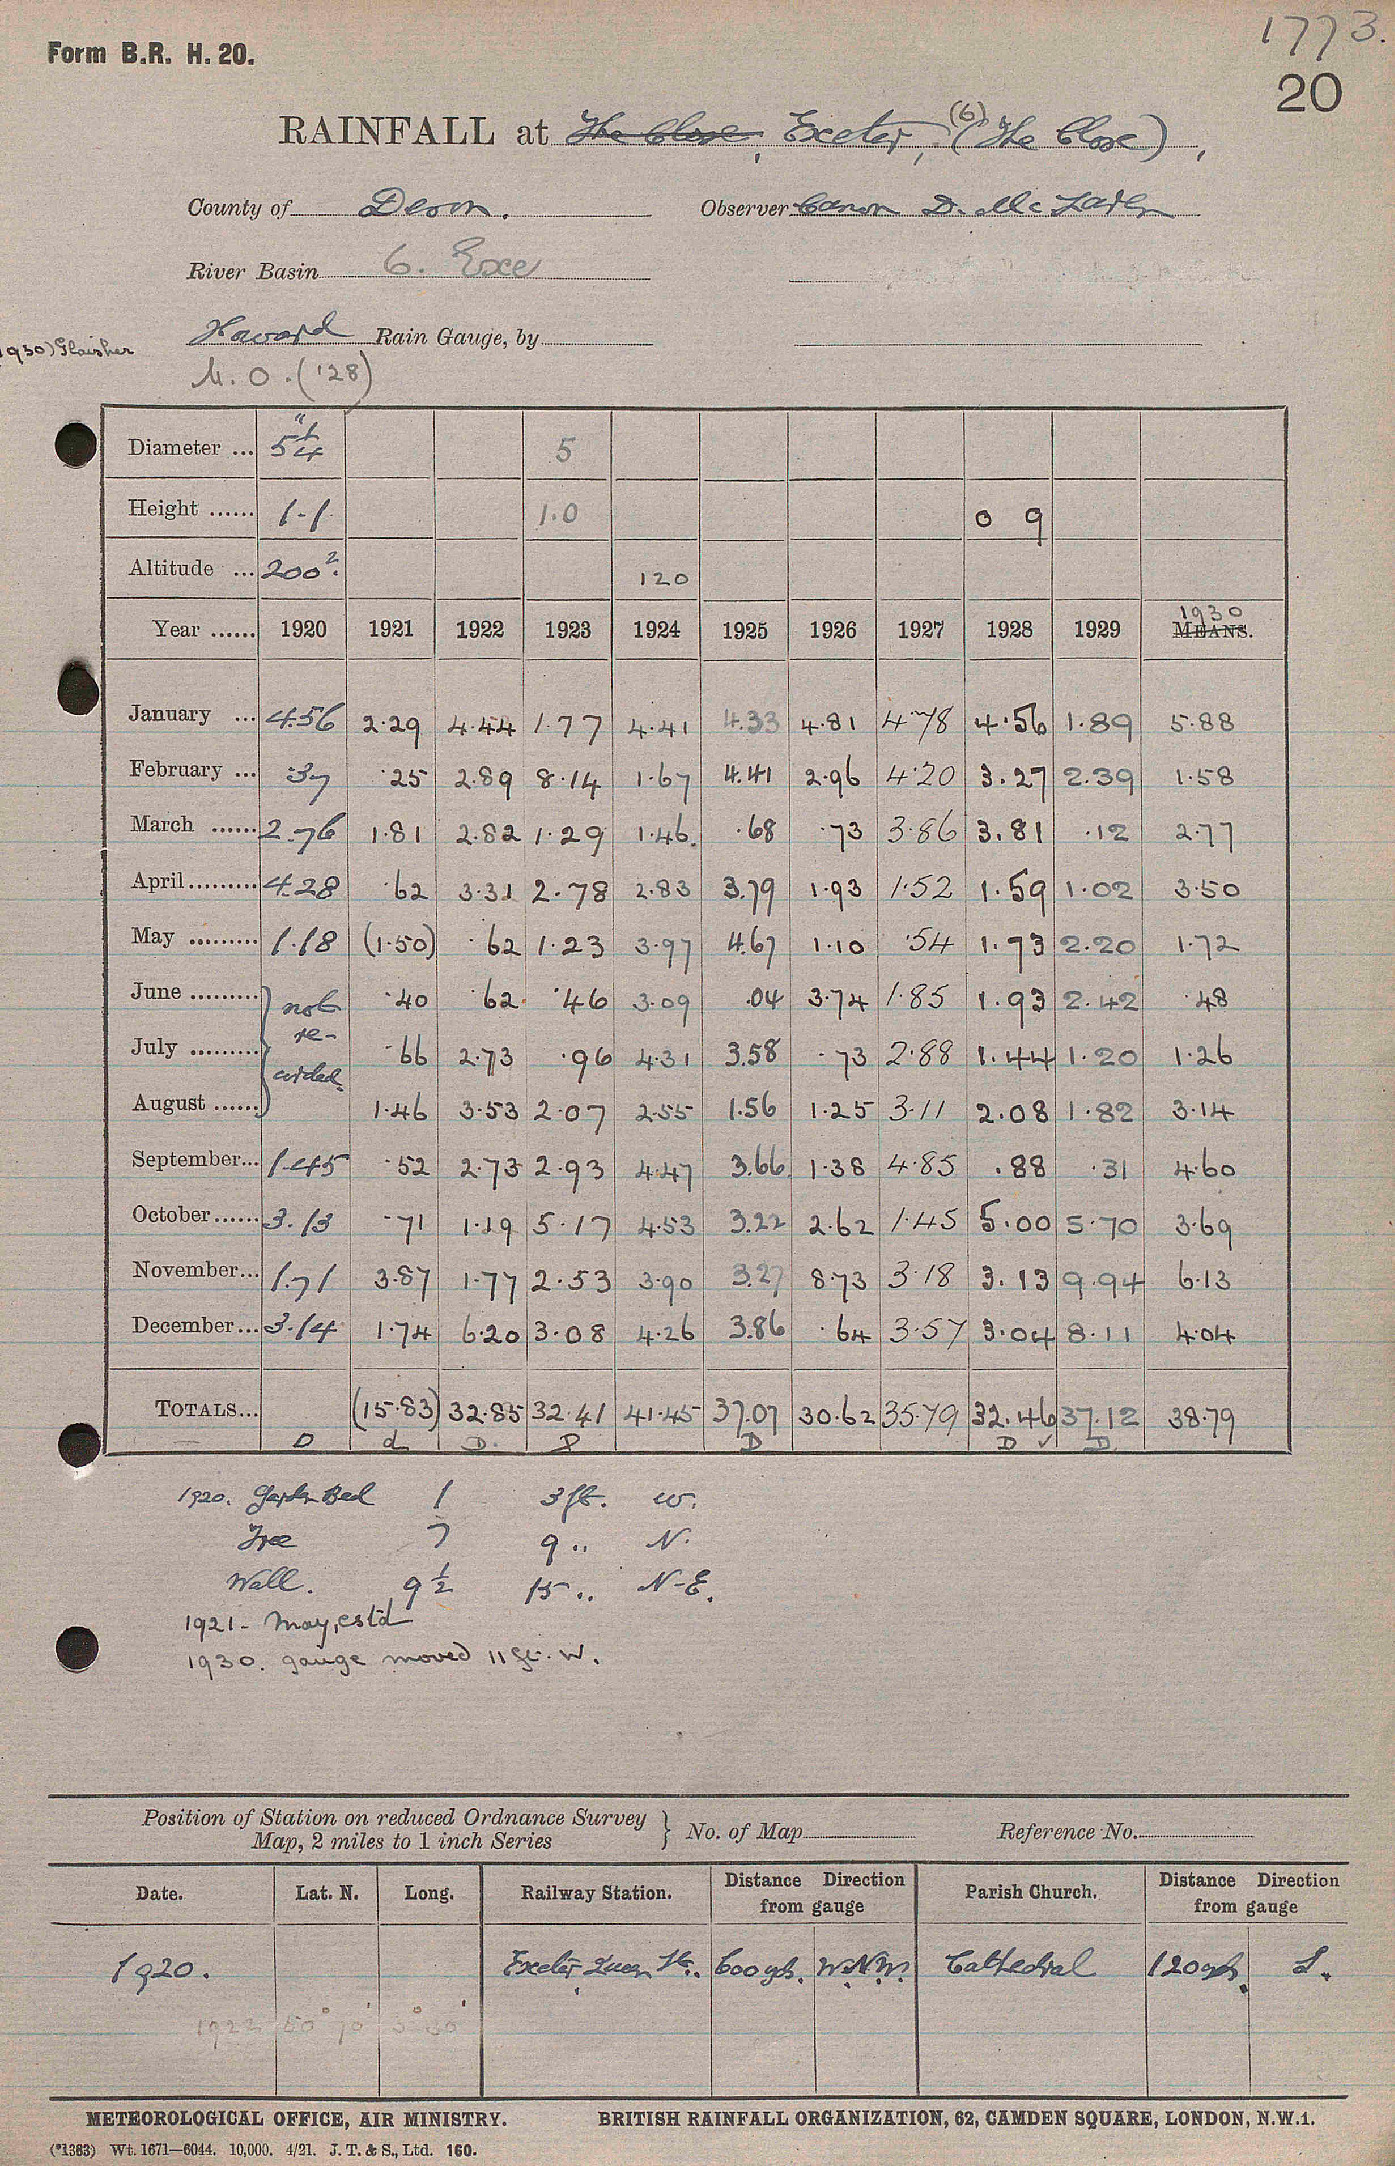 1773.
Form B.R. H. 20.
20
RAINFALL at The Close, Exeter, (6) (The Close),
County of Devon. Observer Canon D. McLaren
River Basin 6. Exe
Howard Rain Gauge, by
1930) Glaisher
M.O. ('28)
Diameter ... 5¼" 5
Height ...... 1.1 1.0 0 9
Altitude ... 200?. 120
Year ...... 1920 1921 1922 1923 1924 1925 1926 1927 1928 1929 MEANS. 1930
January ... 4.56 2.29 4.44 1.77 4.41 4.33 4.81 4.78 4.56 1.89 5.88
February ... .37 .25 2.89 8.14 1.67 4.41 2.96 4.20 3.27 2.39 1.58
March ...... 2.76 1.81 2.82 1.29 1.46 .68 .73 3.86 3.81 .12 2.77
April ......... 4.28 .62 3.31 2.78 2.83 3.79 1.93 1.52 1.59 1.02 3.50
May ......... 1.18 (1.50) .62 1.23 3.97 4.67 1.10 .54 1.73 2.20 1.72
June ......... not .40 .62 .46 3.09 .04 3.74 1.85 1.93 2.42 .48
July ......... re- .66 2.73 .96 4.31 3.58 .73 2.88 1.44 1.20 1.26
August ...... corded. 1.46 3.53 2.07 2.55 1.56 1.25 3.11 2.08 1.82 3.14
September... 1.45 .52 2.73 2.93 4.47 3.66 1.38 4.85 .88 .31 4.60
October ...... 3.13 .71 1.19 5.17 4.53 3.22 2.62 1.45 5.00 5.70 3.69
November... 1.71 3.87 1.77 2.53 3.90 3.27 8.73 3.18 3.13 9.94 6.13
December... 3.14 1.74 6.20 3.08 4.26 3.86 .64 3.57 3.04 8.11 4.04
TOTALS... (15.83) 32.85 32.41 41.45 37.07 30.62 35.79 32.46 37.12 38.79
D d D. D D ✓ D
1920. Garden Bed 1 3 ft. W.
Tree 7 9 .. N.
Wall. 9½ 15 .. N-E.
1921 - May, est'd
1930. gauge moved 11 ft. W.
Position of Station on reduced Ordnance Survey Map, 2 miles to 1 inch Series } No. of Map Reference No.
Date. Lat. N. Long. Railway Station. Distance Direction from gauge Parish Church. Distance Direction from gauge
1920. Exeter Queen St. 600 yds. W.N.W. Cathedral 120 yds. S.
METEOROLOGICAL OFFICE, AIR MINISTRY. BRITISH RAINFALL ORGANIZATION, 62, CAMDEN SQUARE, LONDON, N.W.1.
(*1383) Wt. 1671—6044. 10,000. 4/21. J. T. & S., Ltd. 160.